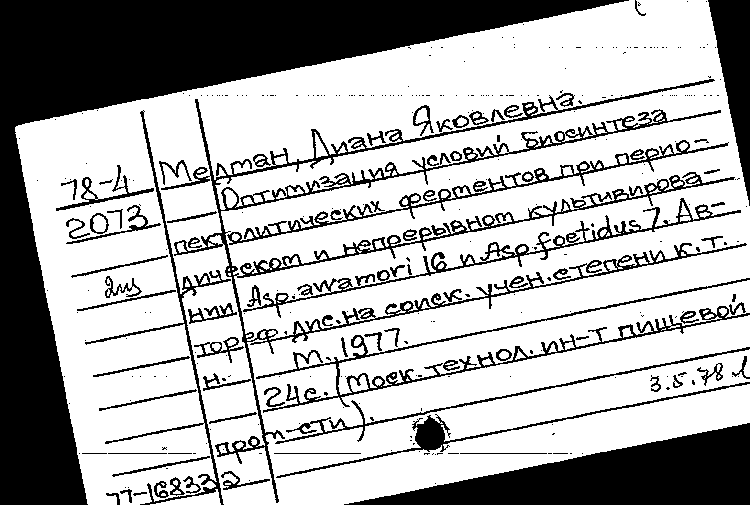 Медман, Диана Яковлевна.
78-4 Оптимизация условий биосинтеза
2073 пектолитических ферментов при перио-
дическом и непрерывном культивирова-
2из нии Asp. awamori 16 и Asp. foetidus 7. Ав-
тореф. дис. на соиск. учен. степени к. т.
н. М., 1977.
24с. (Моск. технол. ин-т пищевой
пром-сти).
3.5.78
77-16833